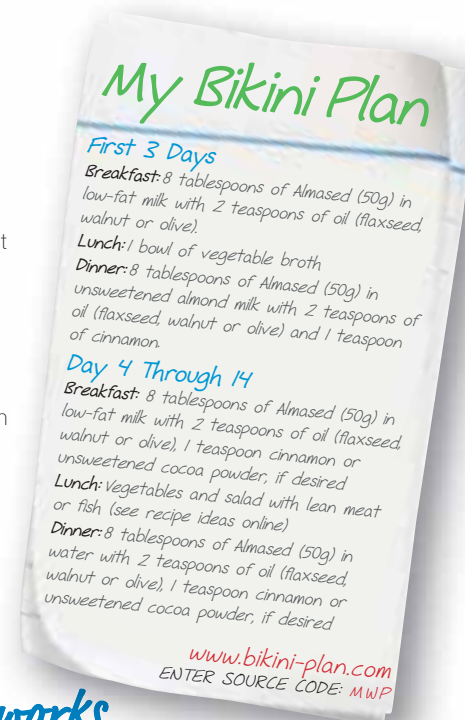 My Bikini Plan
First 3 Days
Breakfast: 8 tablespoons of Almased (50g) in
low-fat milk with 2 teaspoons of oil (flaxseed,
walnut or olive).
Lunch: 1 bowl of vegetable broth
Dinner: 8 tablespoons of Almased (50g) in
unsweetened almond milk with 2 teaspoons of
oil (flaxseed, walnut or olive) and 1 teaspoon
of cinnamon.
Day 4 Through 14
Breakfast: 8 tablespoons of Almased (50g) in
low-fat milk with 2 teaspoons of oil (flaxseed,
walnut or olive), 1 teaspoon cinnamon or
unsweetened cocoa powder, if desired
Lunch: Vegetables and salad with lean meat
or fish (see recipe ideas online)
Dinner: 8 tablespoons of Almased (50g) in
water with 2 teaspoons of oil (flaxseed,
walnut or olive), 1 teaspoon cinnamon or
unsweetened cocoa powder, if desired
www.bikini-plan.com
ENTER SOURCE CODE: MWP
works